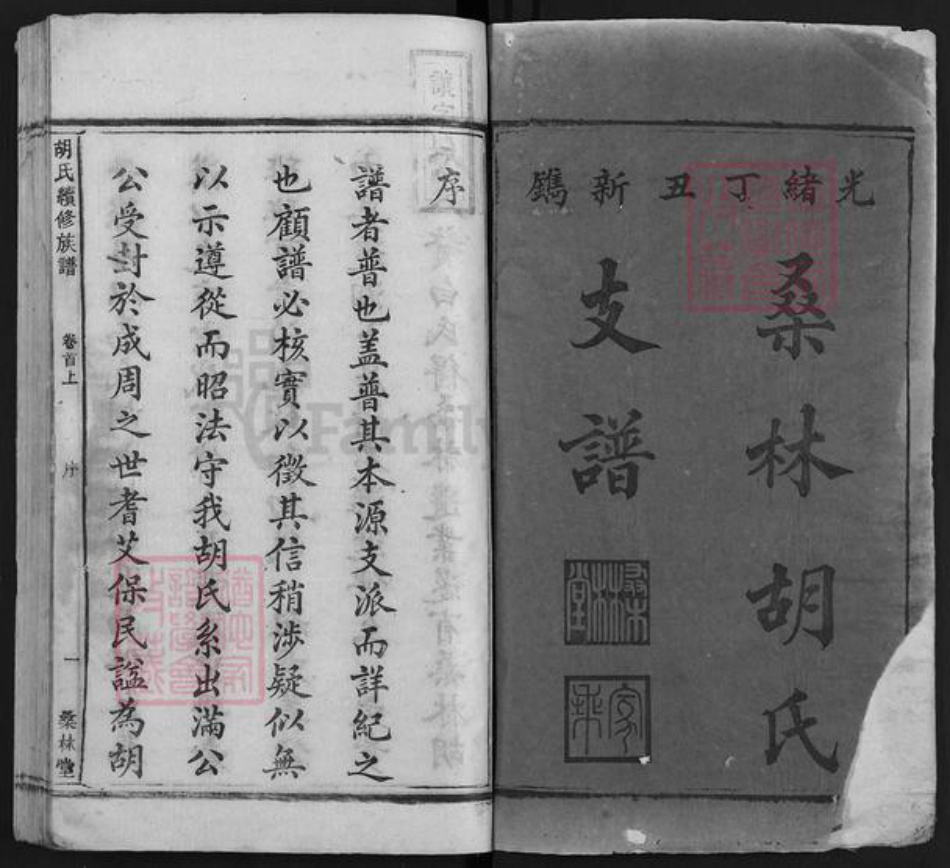 光緒丁丑新鐫
桑林胡氏
支譜
桑林堂
家乘
序
譜者普也蓋普其本源支派而詳紀之
也顧譜必核實以徵其信稍涉疑似無
以示遵從而昭法守我胡氏系出滿公
公受封於成周之世耆艾保民諡為胡
胡氏續修族譜 卷首上 序 一 桑林堂